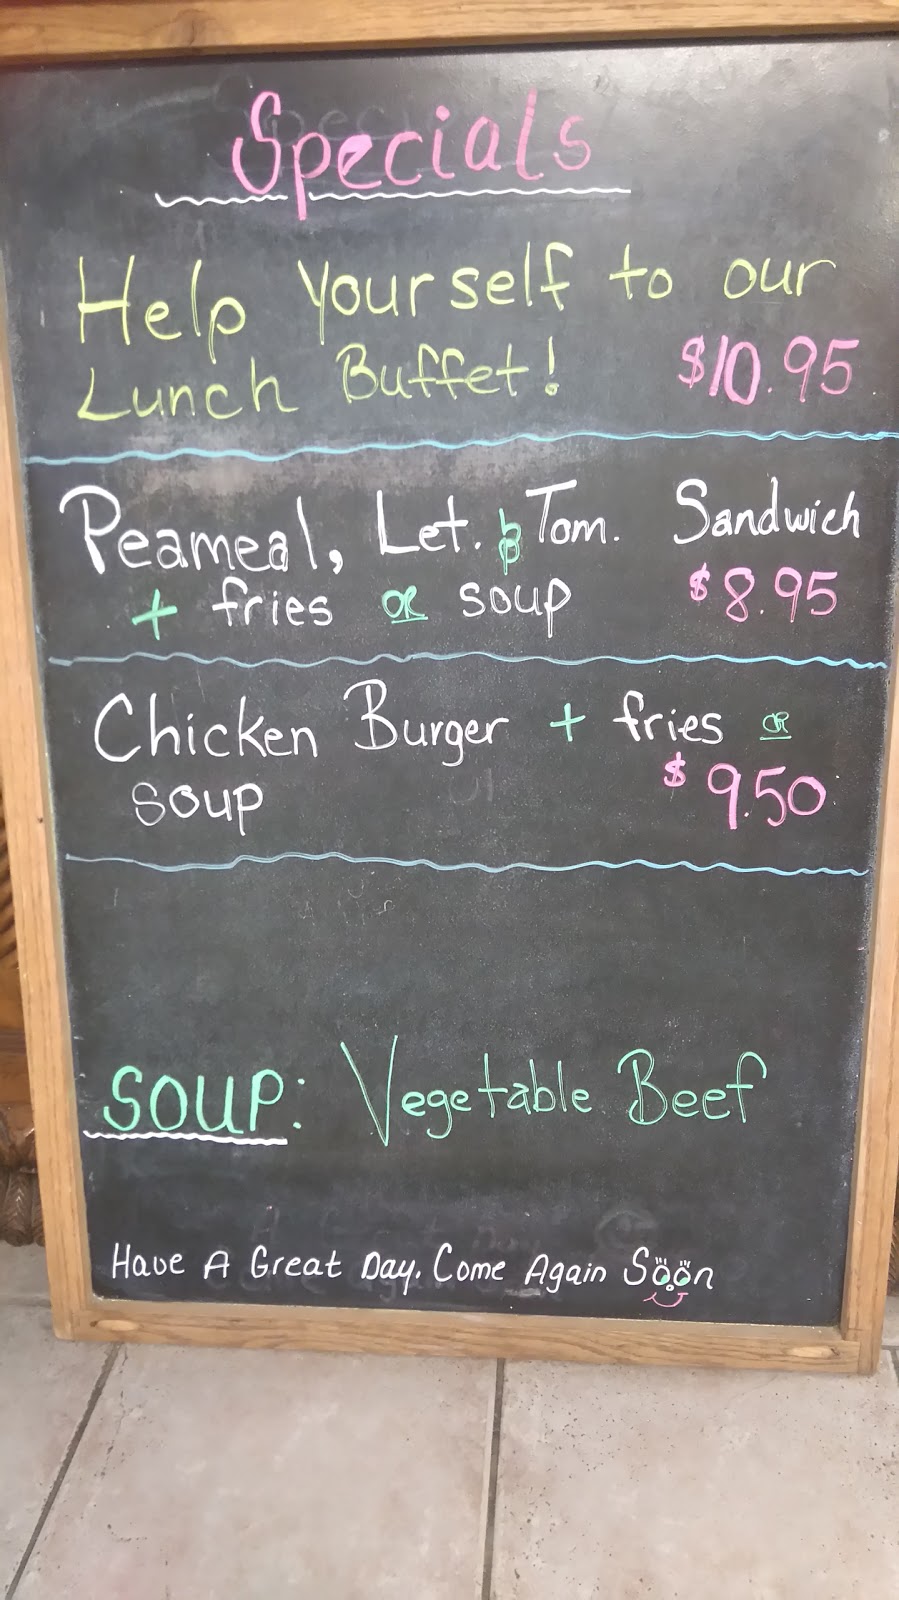 Specials
Help Yourself to our
Lunch Buffet! $10.95
Peameal, Let. & Tom. Sandwich
+ fries OR soup $8.95
Chicken Burger + fries OR
soup $9.50
SOUP: Vegetable Beef
Have A Great Day. Come Again Soon